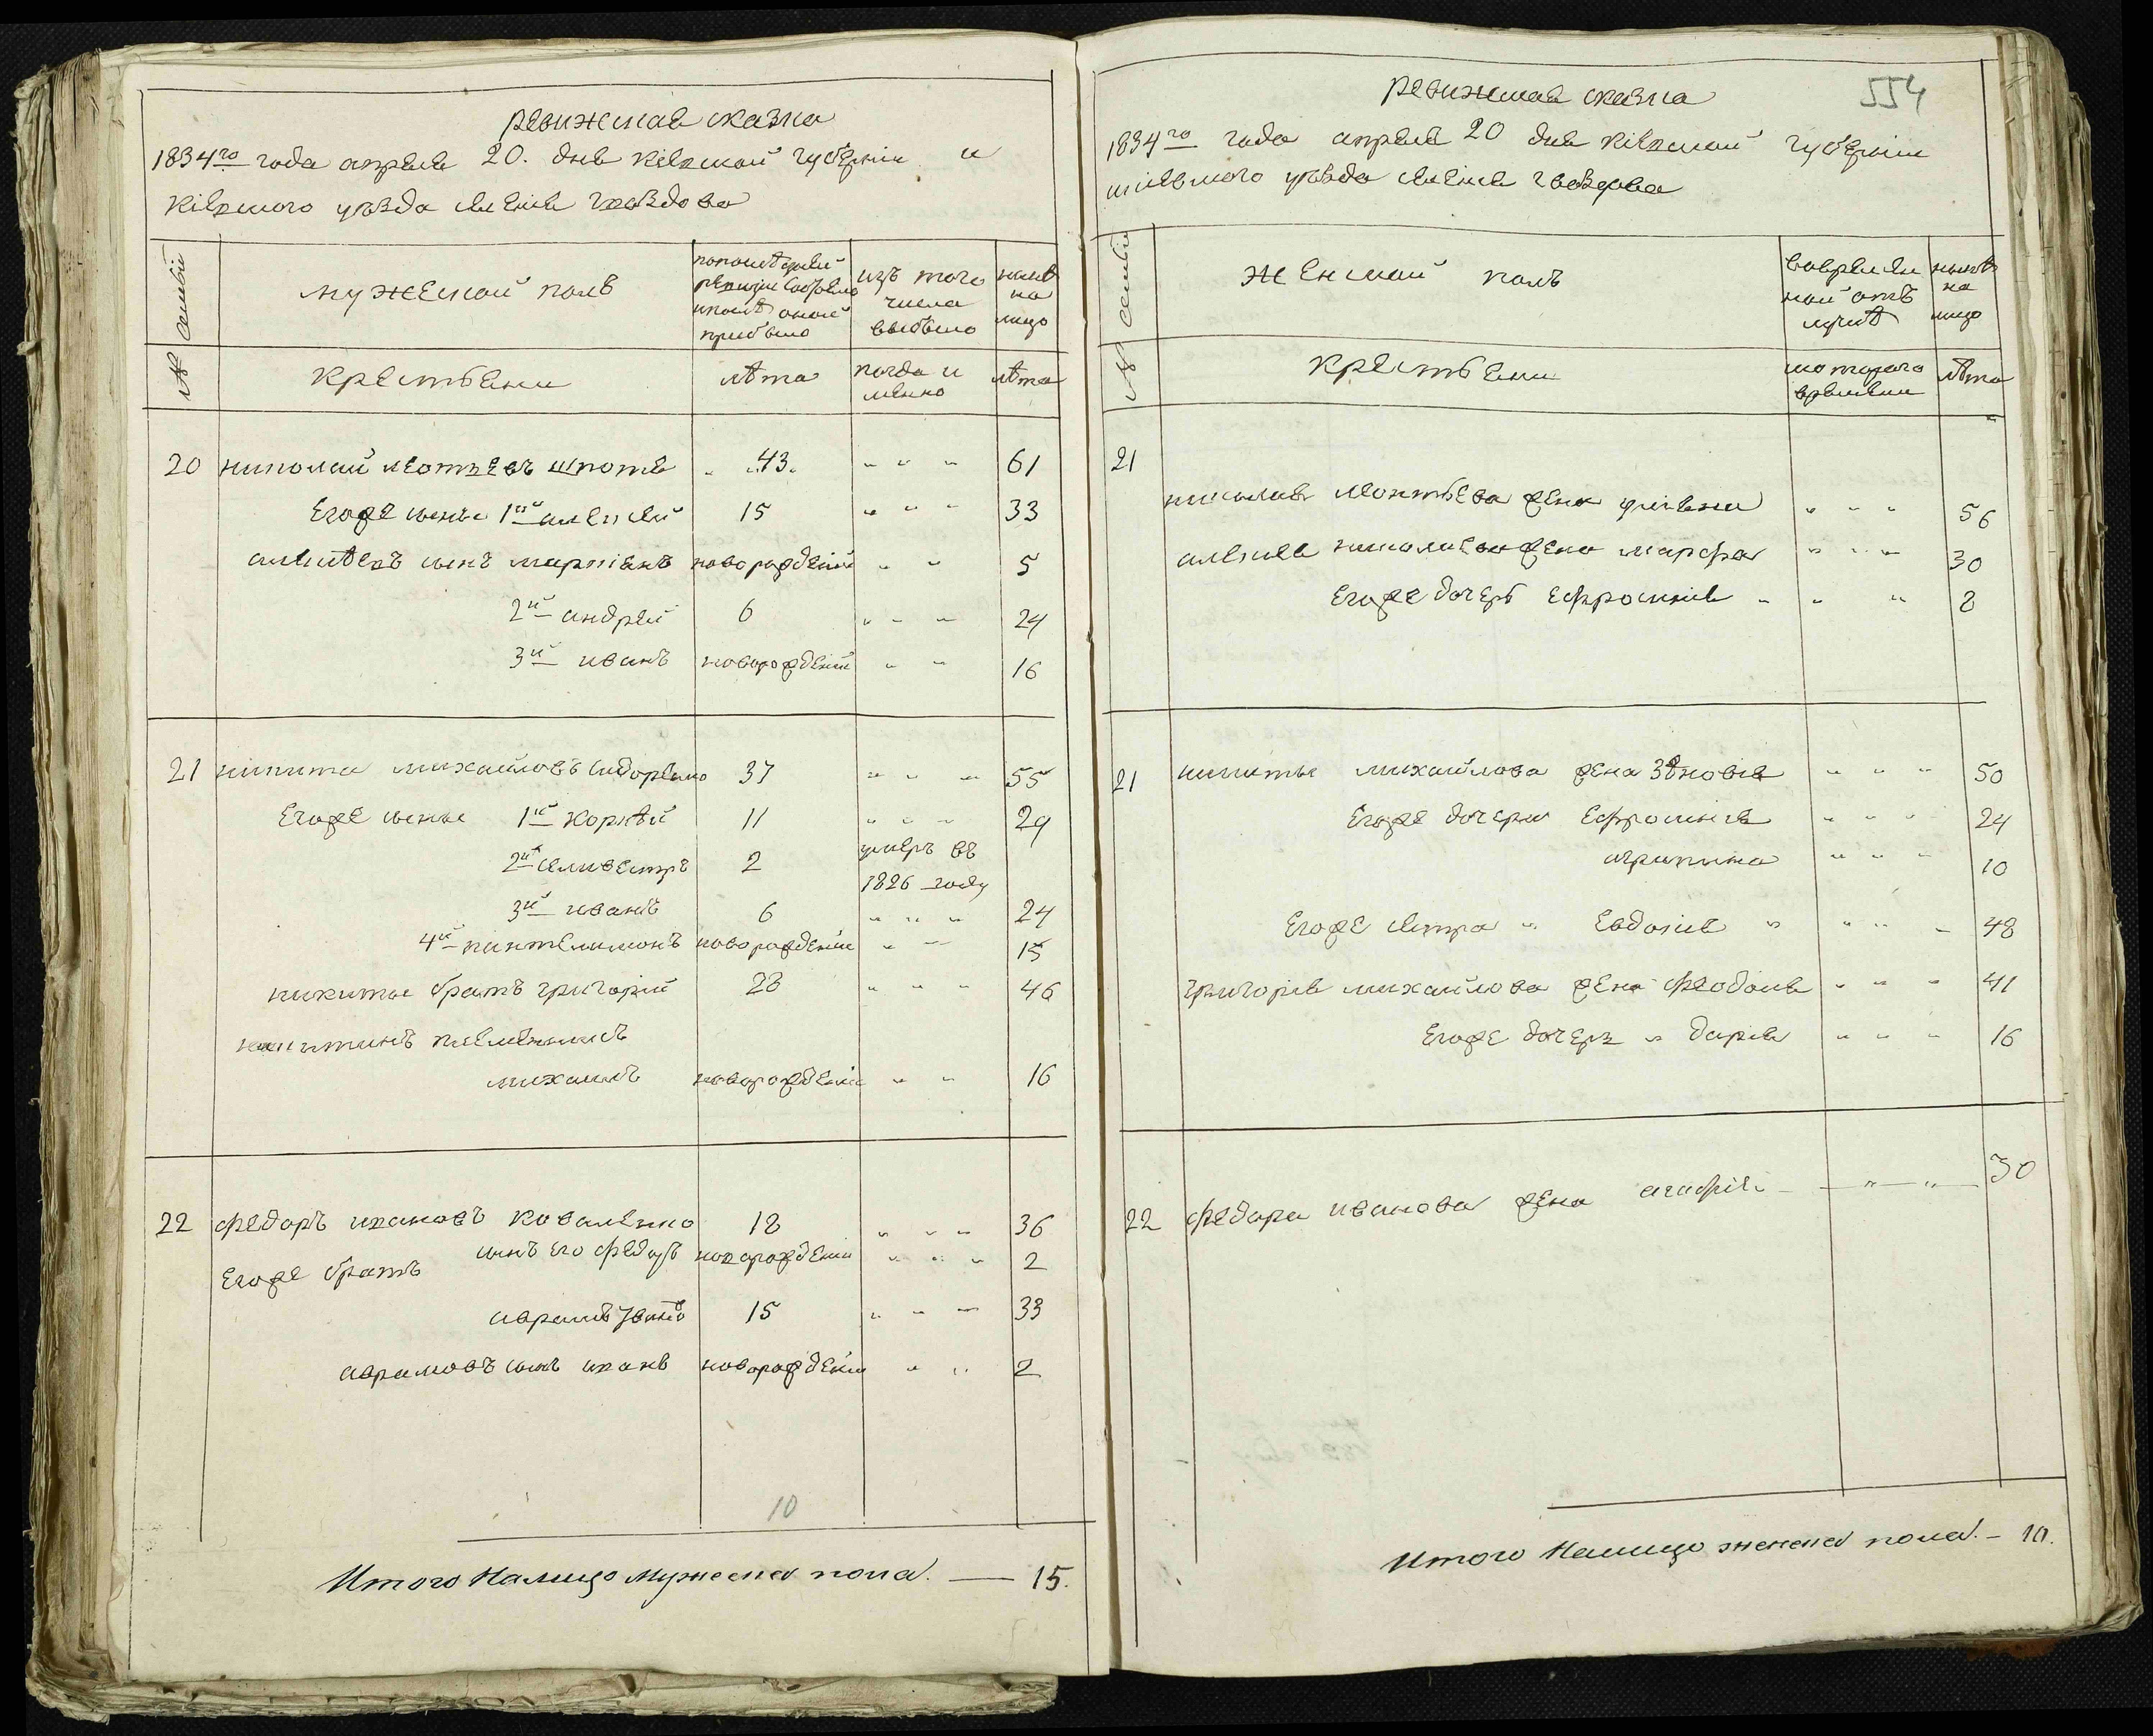 ревижская сказка
1834го года апреля 20. дня Кіевской губерніи и
Кіевского уѣзда селенія гвоздова
№ семьи
мужеской полъ
изъ того числа выбыло
нынѣ на лицо
крестьени
лѣта
когда и менно
лѣта
20 николай леонтьевъ 43. " " " 61
Егоже сыны 1й алексей 15 " " " 33
алексѣевъ сынъ маркіянъ новорожденій " " 5
2й андрей 6 " " " 24
3й иванъ новорожденій " " 16
21 никита михайловъ сидоренко 37 " " " 55
Егоже сыны 1й корнѣй 11 " " " 29
2й селивестръ 2 умеръ въ 1826 году
3й иванъ 6 " " " 24
4й пантелимонъ новорожденій " " 15
никиты братъ григорій 28 " " " 46
никитинъ племѣнникъ
михаилъ новорожденій " " 16
22 федоръ ивановъ коваленко 18 " " " 36
сынъ его федоръ новорожденій " " " 2
Егоже братъ
аврамъ 15 " " " 33
аврамовъ сынъ иванъ новорожденій " " 2
10
Итого Налицо мужеска пола. — 15.
554
ревижская сказка
1834го года апреля 20 дня Кіевской губерніи
кіевского уѣзда селенія гвоздова
№ семьи
женской полъ
вовременной отълучкѣ
нынѣ на лицо
крестьени
скоторого времени
лѣта
21
николая леонтьева жена " " " 56
алексея николаева жена марфа " " " 30
Егоже дочерь Ефросинія " " " 8
21 никиты михайлова жена Зѣновія " " " 50
Егоже дочери Ефросинія " " " 24
агрипина " " " 10
Егоже сестра " Евдокія " " " " 48
григорія михайлова жена феодосія " " " 41
Егоже дочерь " дарія " " " 16
22 федора иванова жена агафія — " — " — 30
Итого Налицо женска пола. — 10.